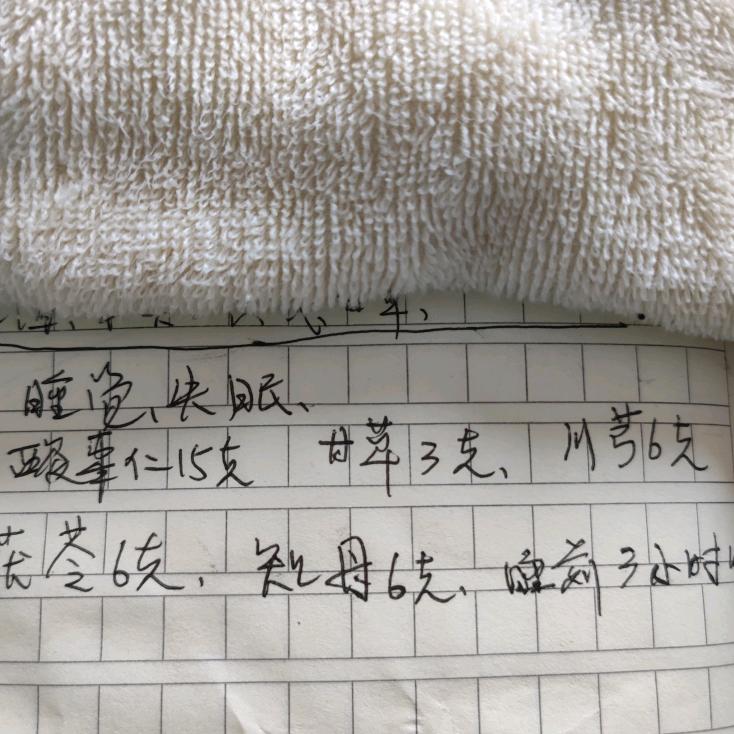 睡觉、失眠、
酸枣仁15克 甘草3克、 川芎6克
茯苓6克、知母6克、睡前3小时